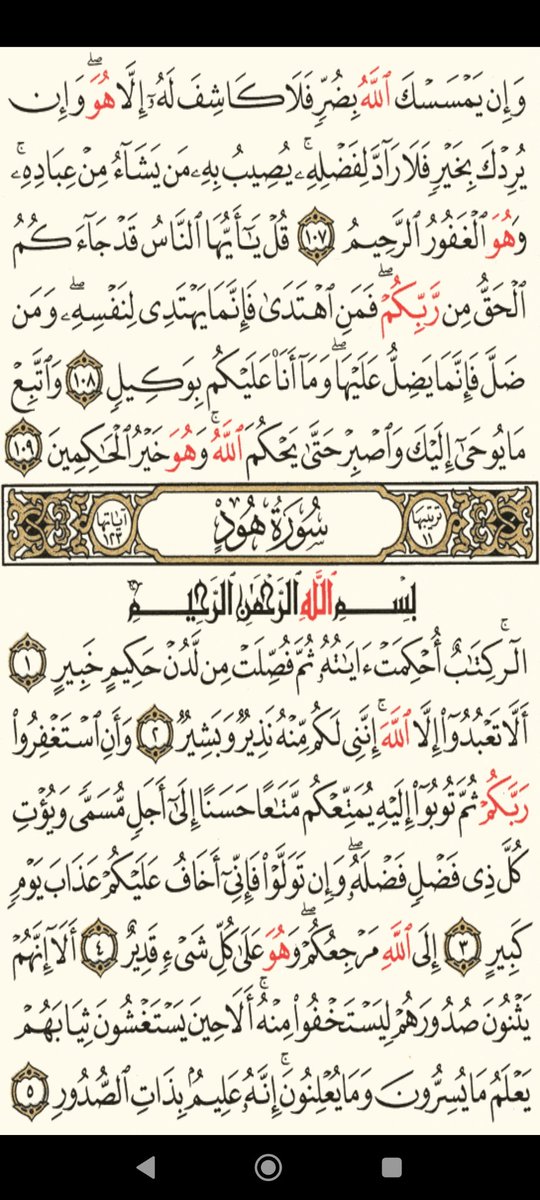 وَإِن يَمْسَسْكَ ٱللَّهُ بِضُرٍّ فَلَا كَاشِفَ لَهُۥٓ إِلَّا هُوَۖ وَإِن
يُرِدْكَ بِخَيْرٍ فَلَا رَآدَّ لِفَضْلِهِۦۚ يُصِيبُ بِهِۦ مَن يَشَآءُ مِنْ عِبَادِهِۦۚ
وَهُوَ ٱلْغَفُورُ ٱلرَّحِيمُ ١٠٧ قُلْ يَٰٓأَيُّهَا ٱلنَّاسُ قَدْ جَآءَكُمُ
ٱلْحَقُّ مِن رَّبِّكُمْۖ فَمَنِ ٱهْتَدَىٰ فَإِنَّمَا يَهْتَدِى لِنَفْسِهِۦۖ وَمَن
ضَلَّ فَإِنَّمَا يَضِلُّ عَلَيْهَاۖ وَمَآ أَنَا۠ عَلَيْكُم بِوَكِيلٍ ١٠٨ وَٱتَّبِعْ
مَا يُوحَىٰٓ إِلَيْكَ وَٱصْبِرْ حَتَّىٰ يَحْكُمَ ٱللَّهُۚ وَهُوَ خَيْرُ ٱلْحَٰكِمِينَ ١٠٩
ترتيبها ١١ سُورَةُ هُودٍ آياتها ١٢٣
بِسْمِ ٱللَّهِ ٱلرَّحْمَٰنِ ٱلرَّحِيمِ
الٓرۚ كِتَٰبٌ أُحْكِمَتْ ءَايَٰتُهُۥ ثُمَّ فُصِّلَتْ مِن لَّدُنْ حَكِيمٍ خَبِيرٍ ١
أَلَّا تَعْبُدُوٓا۟ إِلَّا ٱللَّهَۚ إِنَّنِى لَكُم مِّنْهُ نَذِيرٌ وَبَشِيرٌ ٢ وَأَنِ ٱسْتَغْفِرُوا۟
رَبَّكُمْ ثُمَّ تُوبُوٓا۟ إِلَيْهِ يُمَتِّعْكُم مَّتَٰعًا حَسَنًا إِلَىٰٓ أَجَلٍ مُّسَمًّى وَيُؤْتِ
كُلَّ ذِى فَضْلٍ فَضْلَهُۥۖ وَإِن تَوَلَّوْا۟ فَإِنِّىٓ أَخَافُ عَلَيْكُمْ عَذَابَ يَوْمٍ
كَبِيرٍ ٣ إِلَى ٱللَّهِ مَرْجِعُكُمْۖ وَهُوَ عَلَىٰ كُلِّ شَىْءٍ قَدِيرٌ ٤ أَلَآ إِنَّهُمْ
يَثْنُونَ صُدُورَهُمْ لِيَسْتَخْفُوا۟ مِنْهُۚ أَلَا حِينَ يَسْتَغْشُونَ ثِيَابَهُمْ
يَعْلَمُ مَا يُسِرُّونَ وَمَا يُعْلِنُونَۚ إِنَّهُۥ عَلِيمٌۢ بِذَاتِ ٱلصُّدُورِ ٥